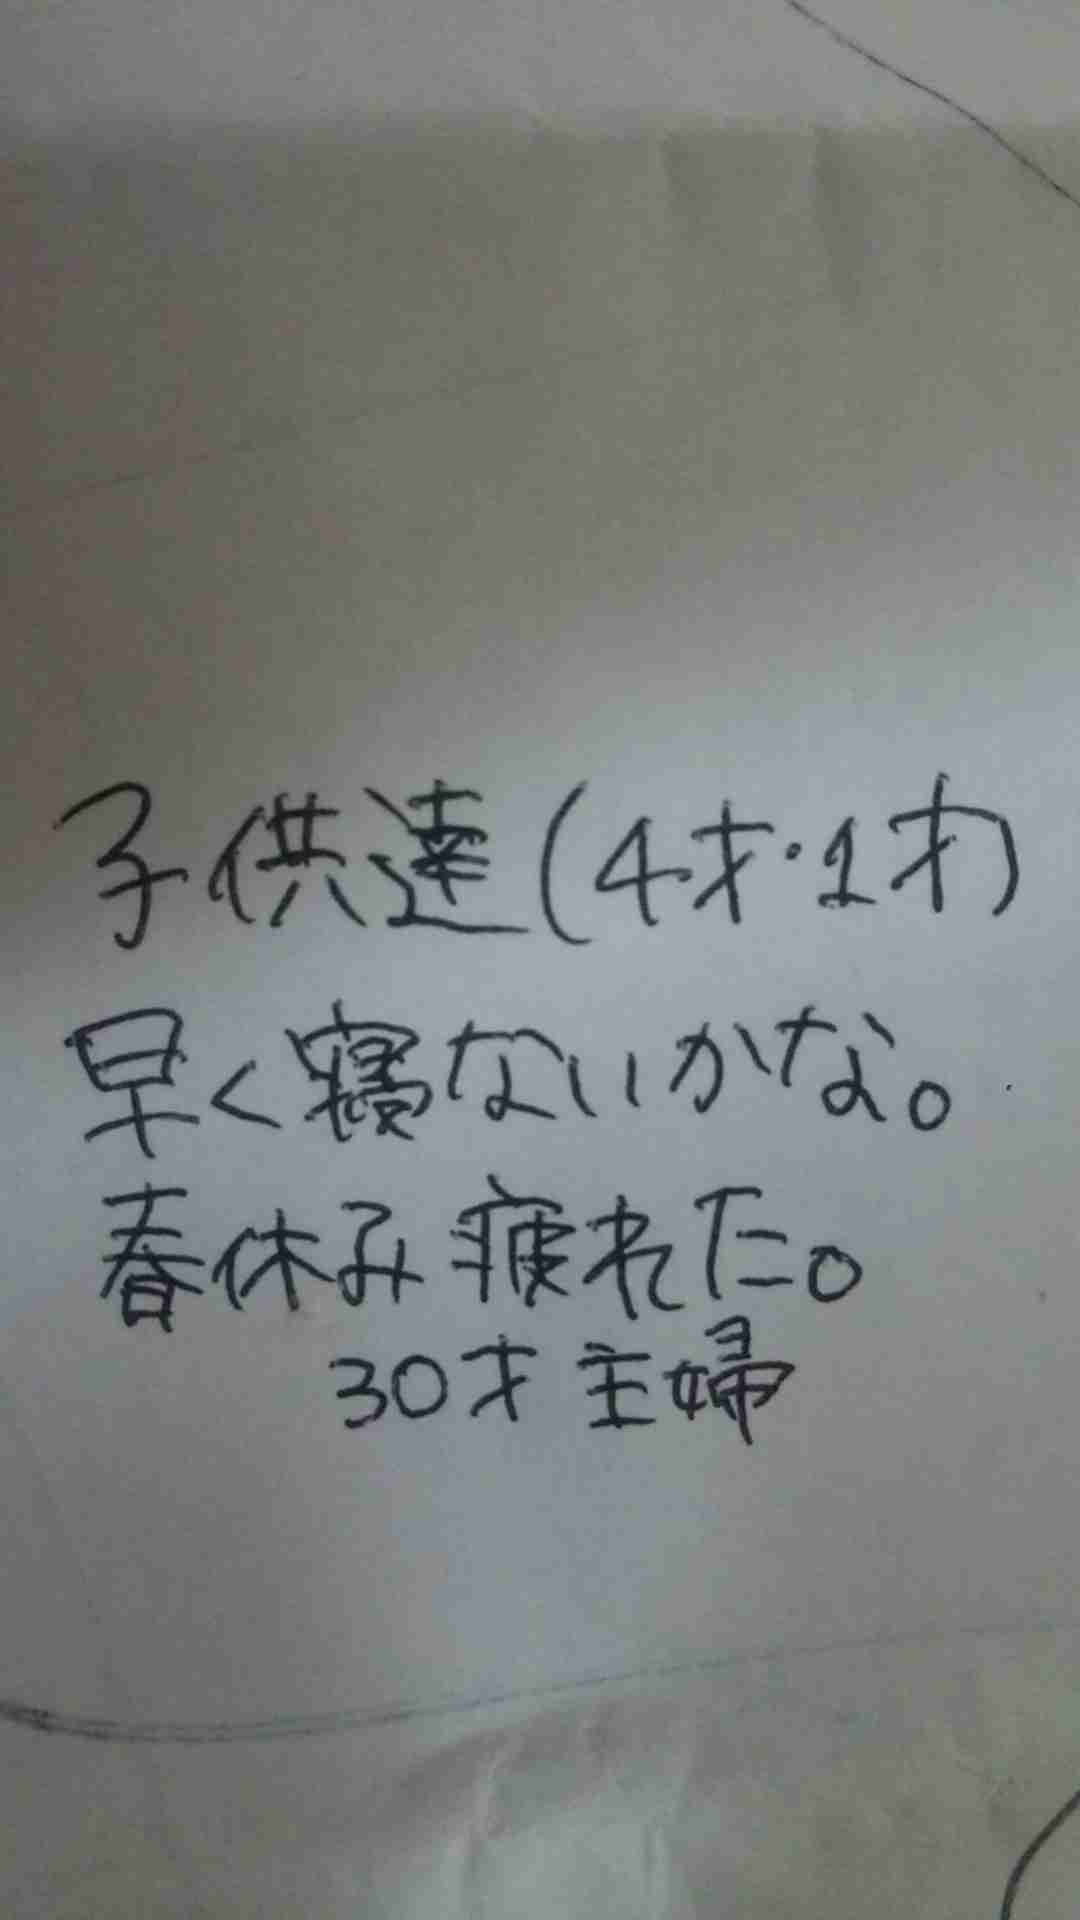 子供達(4才・1才)
早く寝ないかな。
春休み疲れた。
30才 主婦